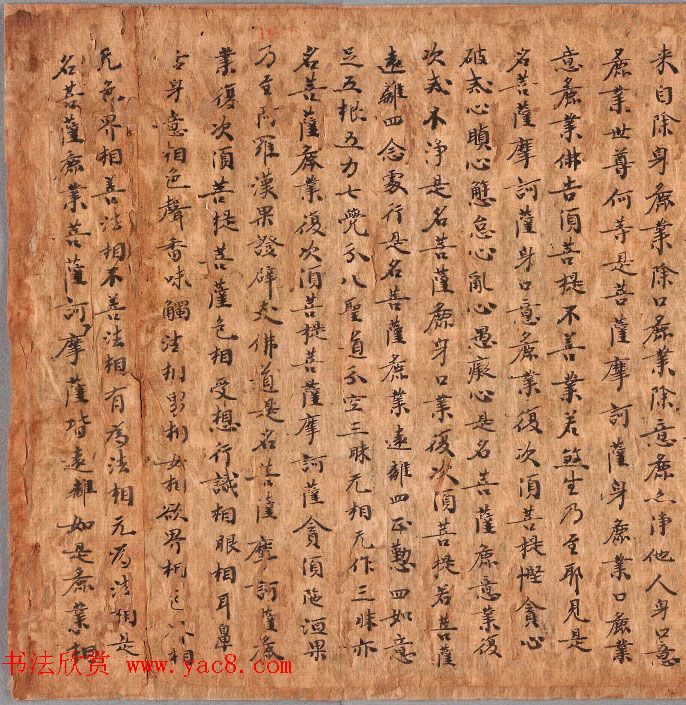 来自除身麁業除口麁業除意麁亦淨他人身口意
麁業世尊何等是菩薩摩訶薩身麁業口麁業
意麁業佛告須菩提不善業若煞生乃至耶見是
名菩薩摩訶薩身口意麁業復次須菩提慳貪心
破戒心瞋心懈怠心亂心愚癡心是名菩薩麁意業復
次戒不淨是名菩薩麁身口業復次須菩提若菩薩
遠離四念處行是名菩薩麁業遠離四正懃四如意
足五根五力七覺分八聖道分空三昧无相无作三昧亦
名菩薩麁業復次須菩提菩薩摩訶薩貪須陀洹果
乃至阿羅漢果證辟支佛道是名菩薩摩訶薩麁
業復次須菩提菩薩色相受想行識相眼相耳鼻
舌身意相色聲香味觸法相男相女相欲界相色界相
无色界相善法相不善法相有為法相无為法相是
名菩薩麁業菩薩訶摩薩皆遠離如是麁業相
书法欣赏 www.yac8.com